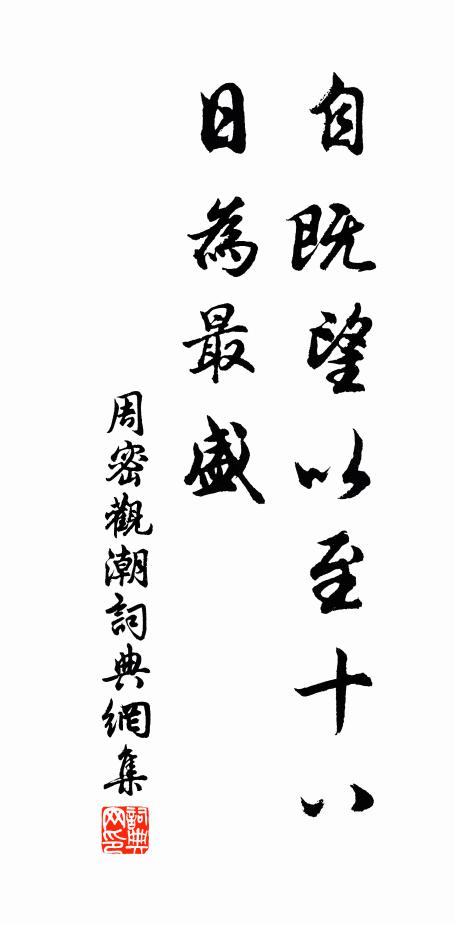 自既望以至十八
日為最盛
周密觀潮詞典網集
詞典
网印